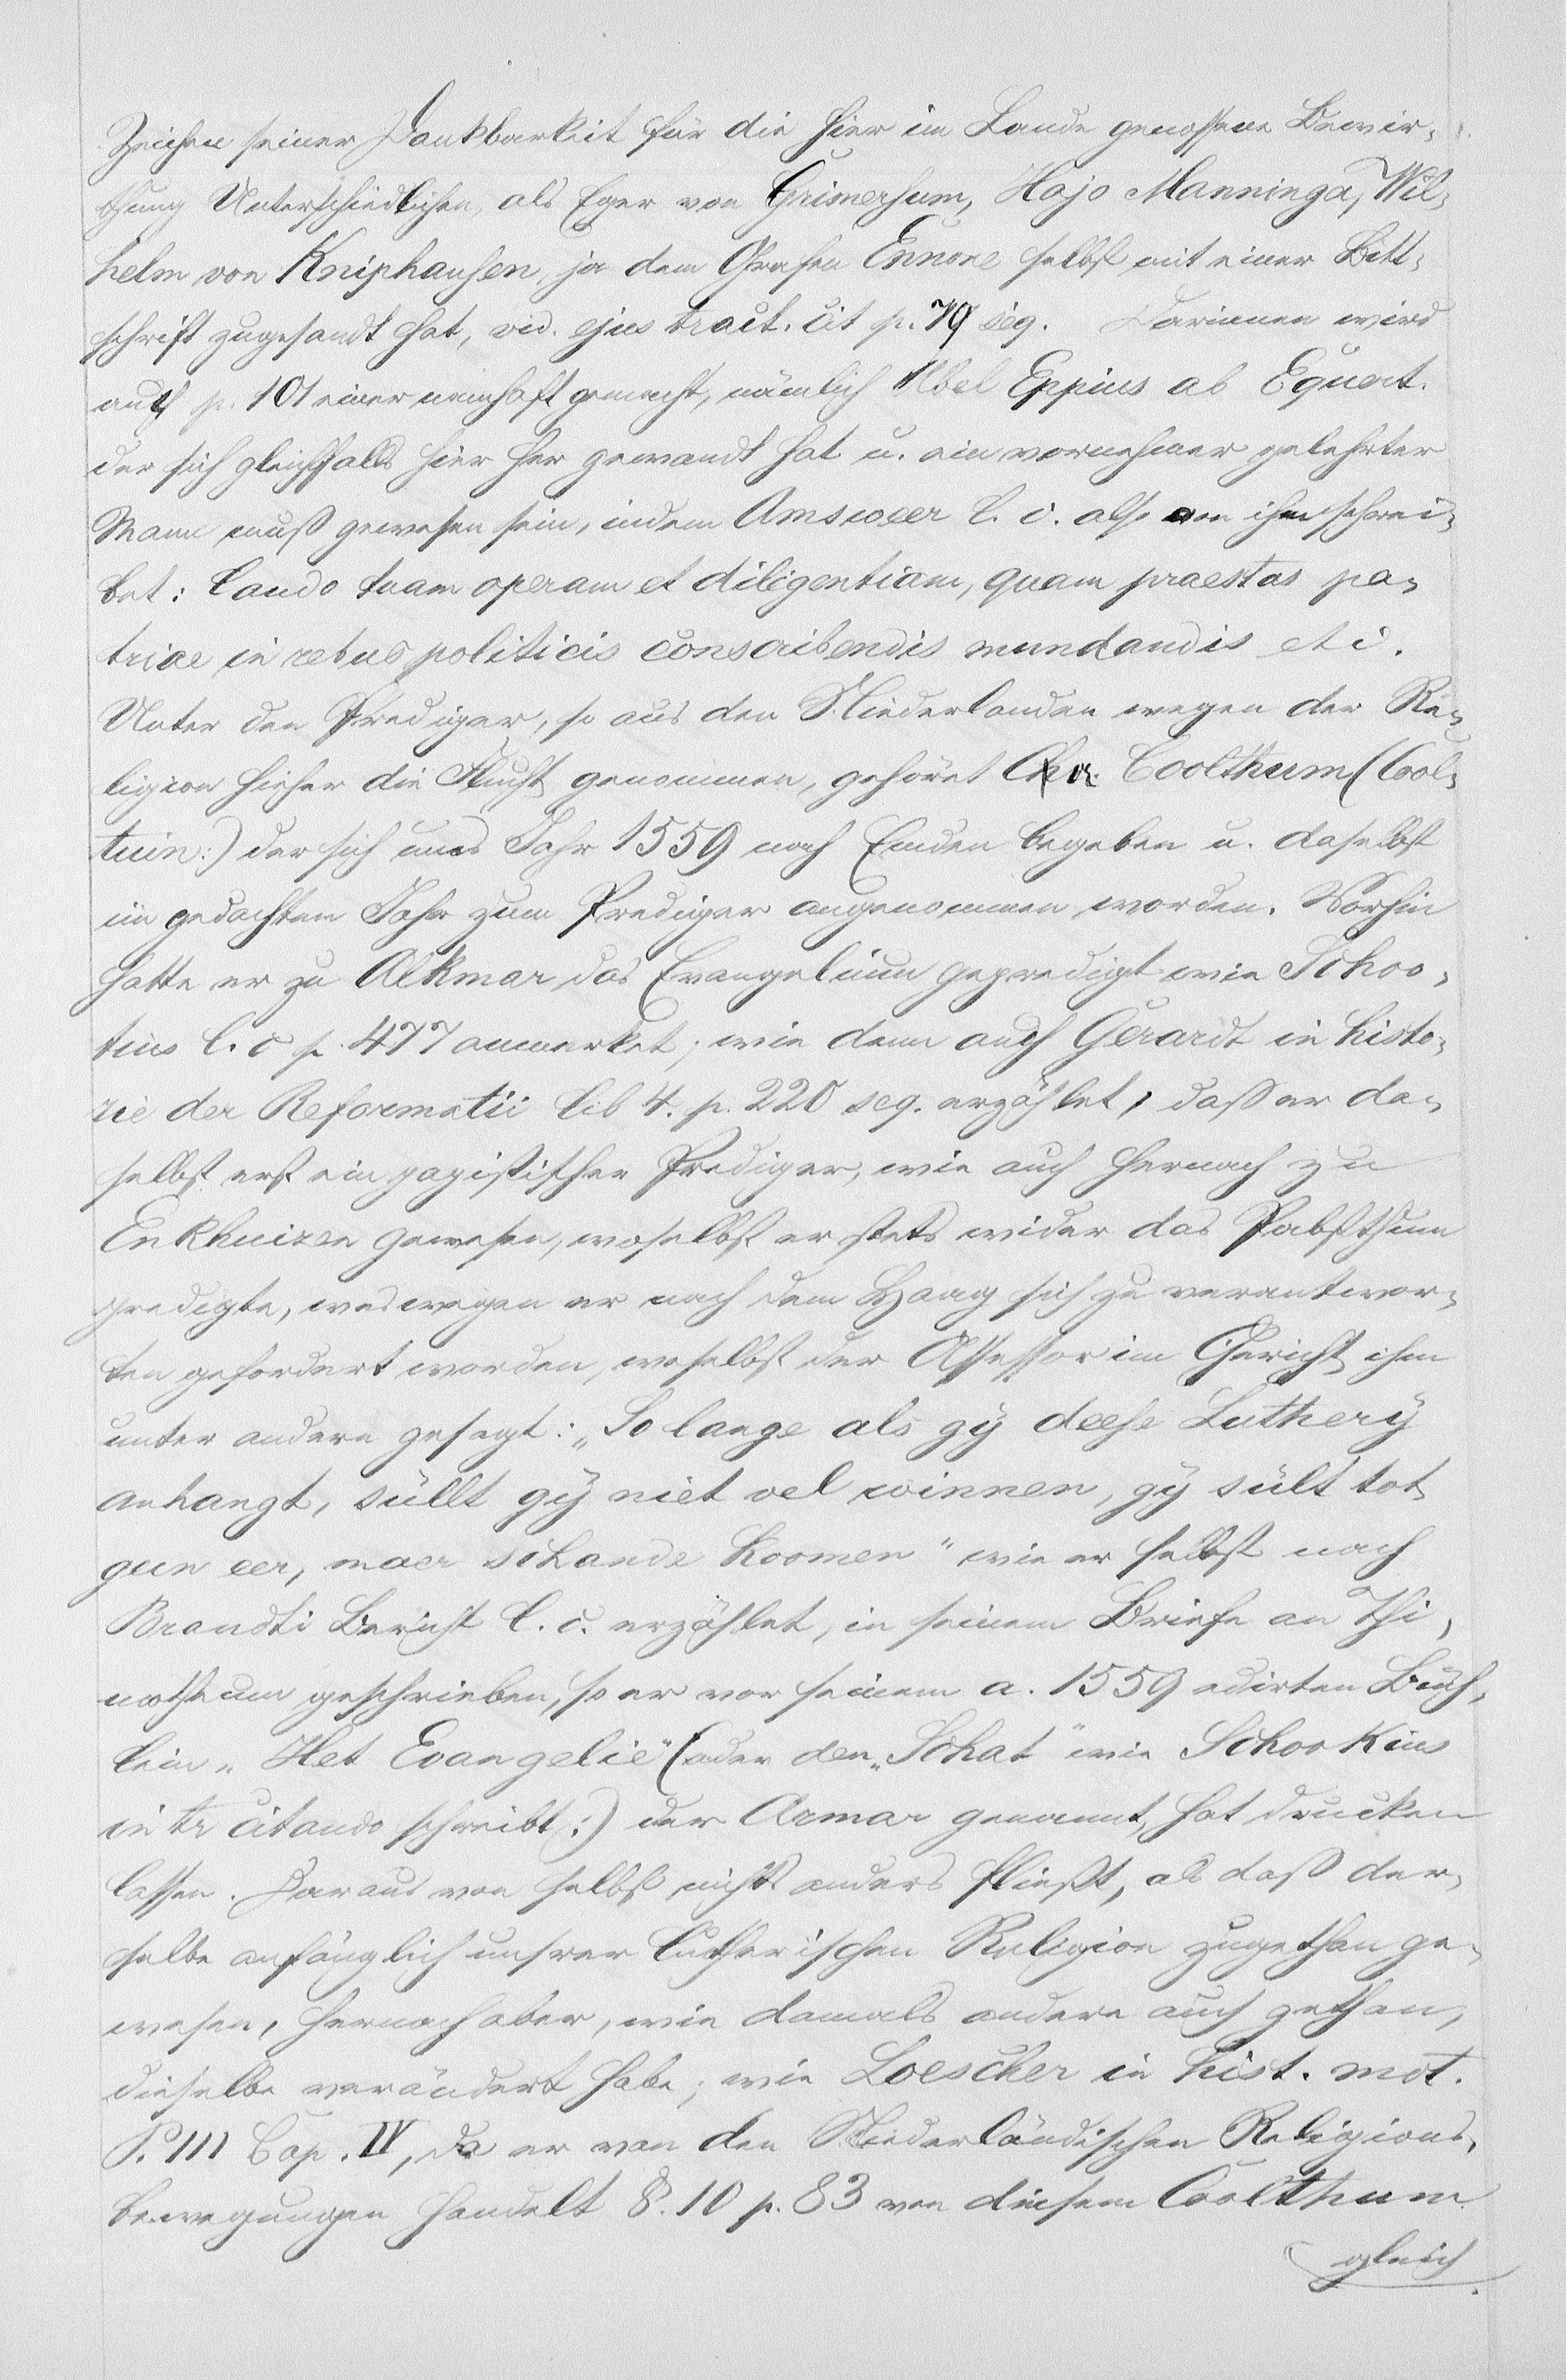 Zeichen seiner Dankbarkeit für die hier im Lande genossene Bewir-
thung Unterschiedlichen, als Eger von Grimersum, Hajo Manninga, Wil-
helm von Kniphausen, ja dem Grafen Ennone selbst mit einer Bitt-
schrift zugesandt hat, vid. ejus tract. cit p. 79 seq. Darinnen wird
auch p. 101 einer namhaft gemacht, nämlich Abel Eppius ab Equart.
der sich gleichfalls hier her gewandt hat u. ein vornehmer gelehrter
Mann muß gewesen sein, indem Amsweer l. c. also von ihm schrei-
bet: laudo tuam operam et diligentiam, quam praestas pa-
triae in rebus politicis conscribendis mundandis etc.
Unter den Prediger, so aus den Niederlanden wegen der Re-
ligion hieher die Flucht genommen, gehöret Coolthum (Cool-
tuin:) der sich ums Jahr 1559 nach Emden begeben u. daselbst
im gedachten Jahr zum Prediger angenommen worden. Vorhin
hatte er zu Alkmar das Evangelium gepredigt wie Schoo-
kius l. c p. 477 anmerket; wie denn auch Gerardt in histo-
rie der Reformatii lib 4. p. 220 seq. erzählet, daß er da-
selbst erst ein papistischer Prediger, wie auch hernach zu
Enkhuizen gewesen, woselbst er stets wider das Pabstthum
predigte, weswegen er nach dem Haag sich zu verantwor-
ten gefordert worden, woselbst der Assessor im Gericht ihm
unter andern gesagt: „So lange als gÿ deese Lutherÿ
anhangt, süllt gÿ niet vel winnen, gÿ sült tot
geen eer, maer schande koomen" wie er selbst nach
Brandti Bericht l. c. erzählet, in seinem Briefe an Thi-
motheum geschrieben, so er vor seinem a. 1559 edirten Büch-
lein „Het Evangelie" (oder den „Schat" wie Schookius
in tr citando schreibt:) der Armar genannt, hat drucken
lassen. Daraus von selbst nichts anders fließt, als daß der-
selbe anfänglich unsrer Lutherischen Religion zugethan ge-
wesen, hernach aber, wie damals andere auch gethan,
dieselbe verändert habe; wie Loescher in hist. mot.
P. III Cap. IV, da er von den Niederländischen Religions-
bewegungen handelt §. 10 p. 83 von diesem Coolthum
gleich